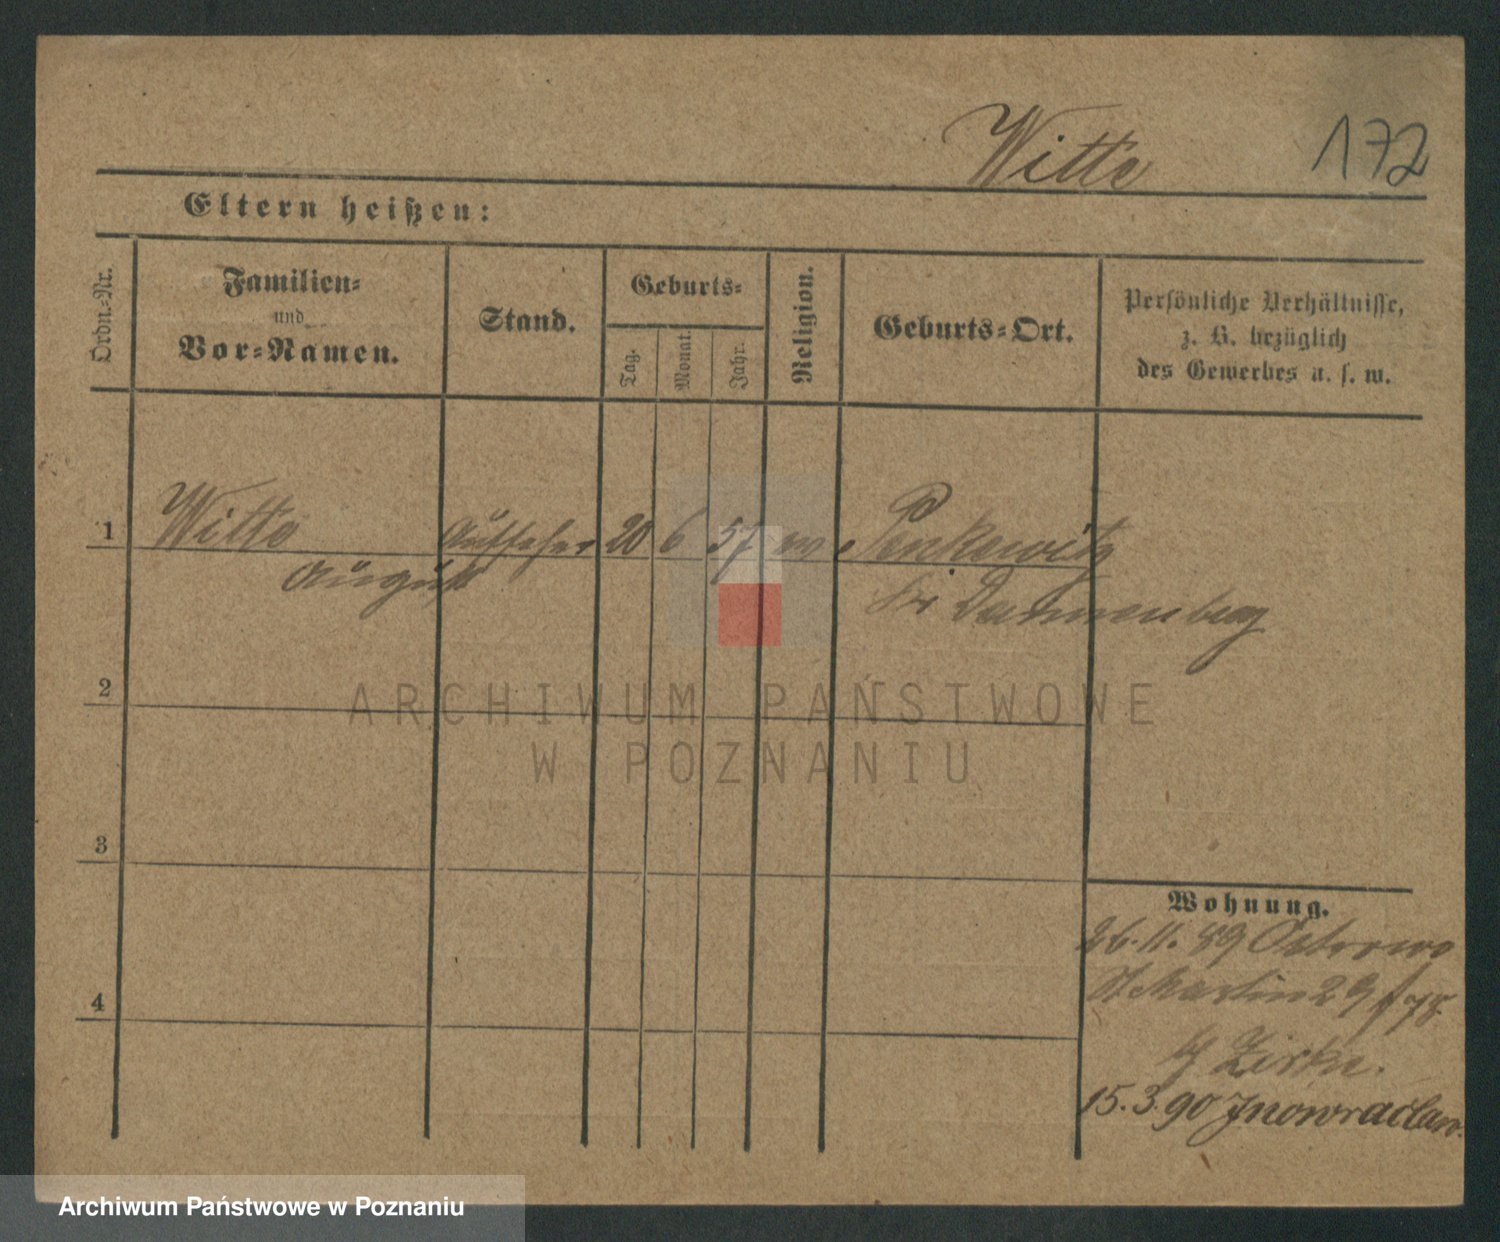 Witte 172
Eltern heißen:
Ordn.=Nr.
Familien=
und
Vor=Namen.
Stand.
Geburts=
Tag.
Monat.
Jahr.
Religion.
Geburts=Ort.
Persönliche Verhältnisse,
z. B. bezüglich
des Gewerbes u. s. w.
1 Witte Aufseher 20 6 57 ev Penkowitz
August Kr Dannenberg
2
3
4
Wohnung.
26.11.89 Ostrowo
St Martin 29 / 78
Zirke.
15.3.90 Inowraclaw.
ARCHIWUM PAŃSTWOWE
W POZNANIU
Archiwum Państwowe w Poznaniu